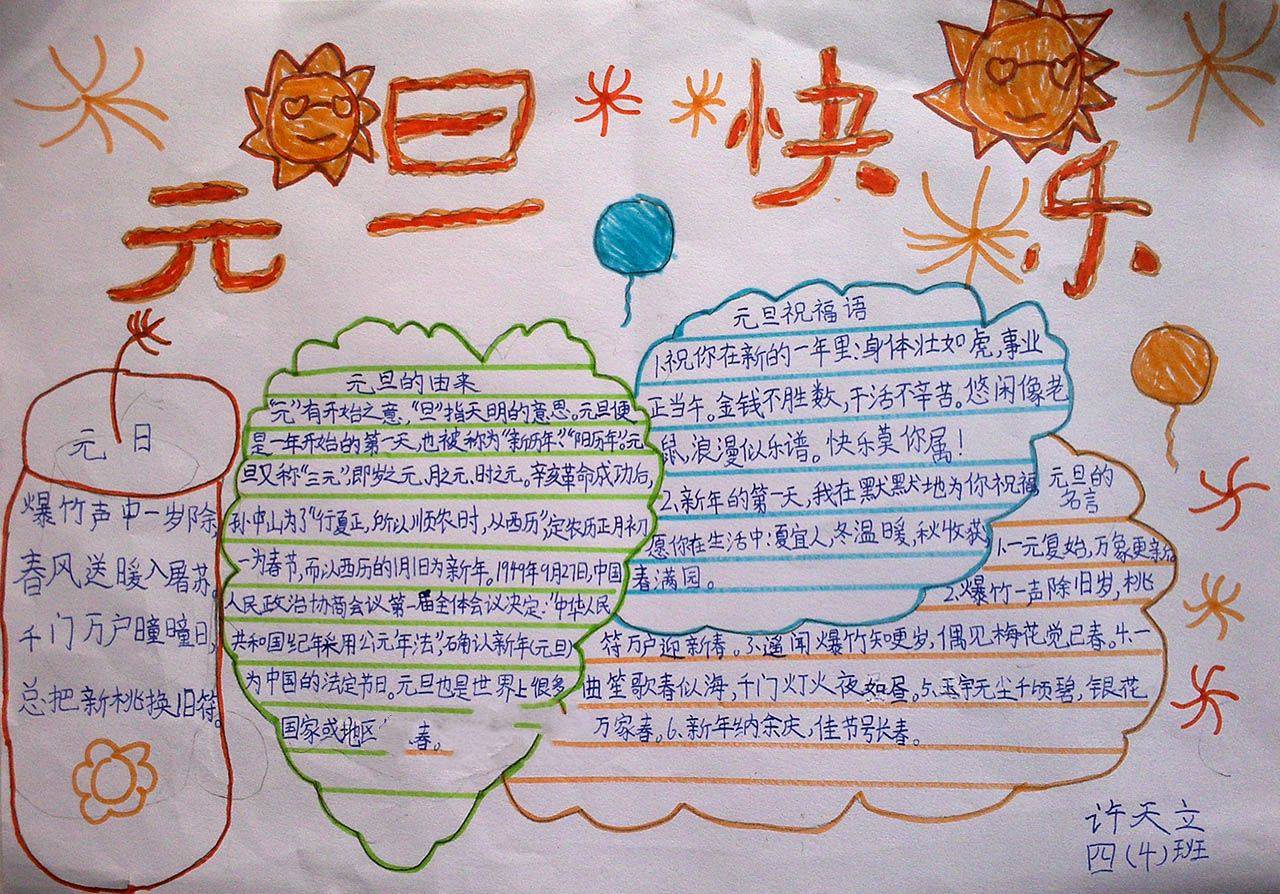 元旦快乐
元日
爆竹声中一岁除,
春风送暖入屠苏。
千门万户曈曈日,
总把新桃换旧符。
元旦的由来
“元”有开始之意，“旦”指天明的意思。元旦便
是一年开始的第一天,也被称为“新历年”“阳历年”。元
旦又称“三元”,即岁之元、月之元、时之元。辛亥革命成功后,
孙中山为了“行夏正,所以顺农时,从西历”,定农历正月初
一为春节,而以西历的1月1日为新年。1949年9月27日,中国
人民政治协商会议第一届全体会议决定:“中华人民
共和国纪年采用公元年法”,确认新年(元旦)
为中国的法定节日。元旦也是世界上很多
国家或地区 春。
元旦祝福语
1.祝你在新的一年里:身体壮如虎,事业
正当午。金钱不胜数,干活不辛苦。悠闲像老
鼠,浪漫似乐谱。快乐莫你属!
2.新年的第一天,我在默默地为你祝福
愿你在生活中:夏宜人,冬温暖,秋收获
春满园。
元旦的
名言
1.一元复始,万象更新。
2.爆竹一声除旧岁,桃
符万户迎新春。3.遥闻爆竹知更岁,偶见梅花觉已春。4.一
曲笙歌春似海,千门灯火夜如昼。5.玉宇无尘千顷碧,银花
万家春。6、新年纳余庆,佳节号长春。
许天立
四(4)班